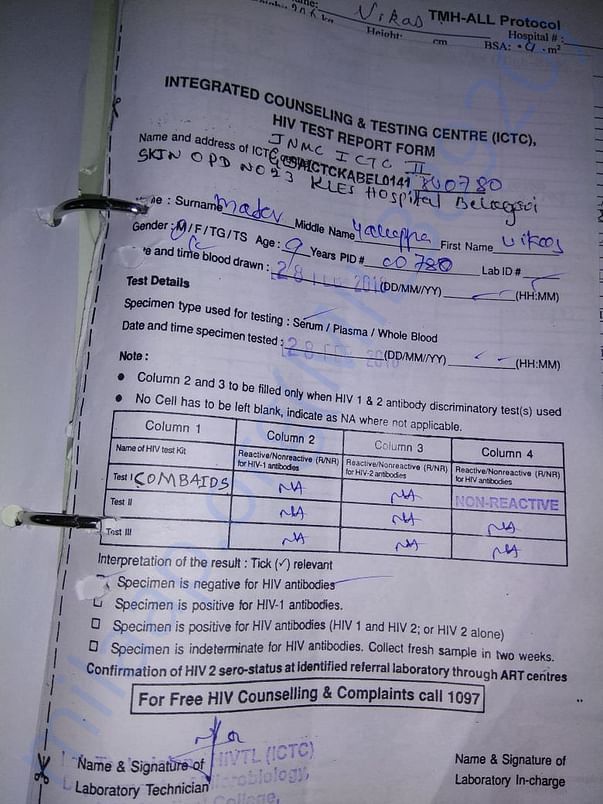 Vikas TMH-ALL Protocol
Height: cm Hospital # :
BSA: m²
INTEGRATED COUNSELING & TESTING CENTRE (ICTC),
HIV TEST REPORT FORM
JNMC ICTC II
Name and address of ICTC
SKIN OPD NO 23 KLES Hospital Belagavi
: Surname Middle Name Yallappa First Name Vikas
Gender : M / F / TG / TS Age : 9 Years PID # 00780 Lab ID #
e and time blood drawn : 28 (DD/MM/YY) (HH:MM)
Test Details
Specimen type used for testing : Serum / Plasma / Whole Blood
Date and time specimen tested : 28 (DD/MM//YY) (HH:MM)
Note :
• Column 2 and 3 to be filled only when HIV 1 & 2 antibody discriminatory test(s) used
• No Cell has to be left blank, indicate as NA where not applicable.
Column 1 Column 2 Column 3 Column 4
Name of HIV test Kit Reactive/Nonreactive (R/NR) for HIV-1 antibodies Reactive/Nonreactive (R/NR) for HIV-2 antibodies Reactive/Nonreactive (R/NR) for HIV antibodies
Test I COMBAIDS NA NA NON-REACTIVE
Test II NA NA NA
Test III NA NA NA
Interpretation of the result : Tick (✓) relevant
Specimen is negative for HIV antibodies
Specimen is positive for HIV-1 antibodies.
Specimen is positive for HIV antibodies (HIV 1 and HIV 2; or HIV 2 alone)
Specimen is indeterminate for HIV antibodies. Collect fresh sample in two weeks.
Confirmation of HIV 2 sero-status at identified referral laboratory through ART centres
For Free HIV Counselling & Complaints call 1097
Name & Signature of
Laboratory Technician
Name & Signature of
Laboratory In-charge